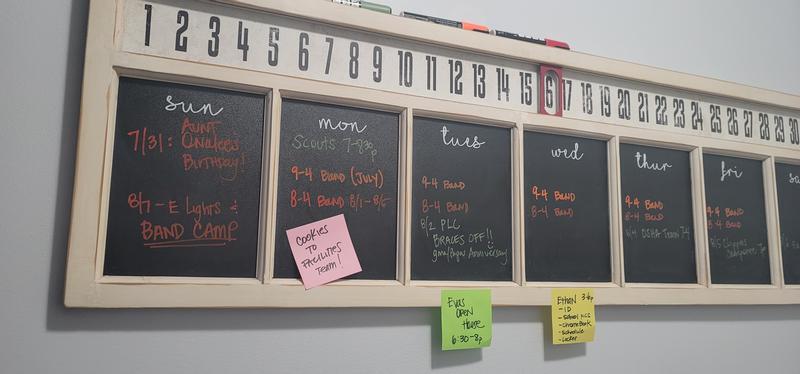 1 2 3 4 5 6 7 8 9 10 11 12 13 14 15 6 17 18 19 20 21 22 23 24 25 26 27 28 29 30
sun
7/31: AUNT
Birthday!
8/7 - E Lights &
BAND CAMP
mon
Scouts 7-830p
9-4 BAND (JULY)
8-4 BAND 8/1-8/5
COOKIES
TO
FACILITIES
TEAM!
tues
9-4 BAND
8-4 BAND
8/2 PLC
BRACES OFF!!
Anniversary
wed
9-4 BAND
8-4 BAND
thur
9-4 BAND
8-4 BAND
8/4 OSHA Team
fri
9-4 BAND
8-4 BAND
8/5 Clippers
sa
Evas
OPEN
House
6:30-8p
Ethan
- ID
- School
- Chromebook
- Schedule
- Locker